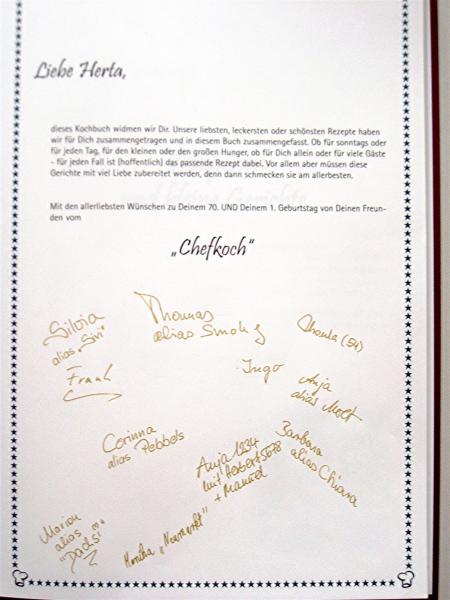 Liebe Herta,
dieses Kochbuch widmen wir Dir. Unsere liebsten, leckersten oder schönsten Rezepte haben
wir für Dich zusammengetragen und in diesem Buch zusammengefasst. Ob für sonntags oder
für jeden Tag, für den kleinen oder den großen Hunger, ob für Dich allein oder für viele Gäste
- für jeden Fall ist (hoffentlich) das passende Rezept dabei. Vor allem aber müssen diese
Gerichte mit viel Liebe zubereitet werden, denn dann schmecken sie am allerbesten.
Mit den allerliebsten Wünschen zu Deinem 70. UND Deinem 1. Geburtstag von Deinen Freun-
den vom
„Chefkoch“
Silvia
alias „Sivi“
Thomas
alias Smoky
Ursula (54)
Frank
Ingo
Anja
alias Molt
Corinna
alias Pebbels
Anja1234
mit Herbert5678
+ Manuel
Barbara
alias Chiara
Marion
alias
"Dachsi"
Monika